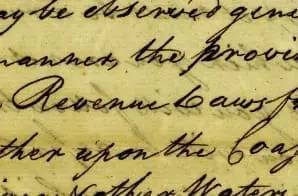 ay be observed gene
manner, the provi
Revenue Laws f
ther upon the Coas
other Waters